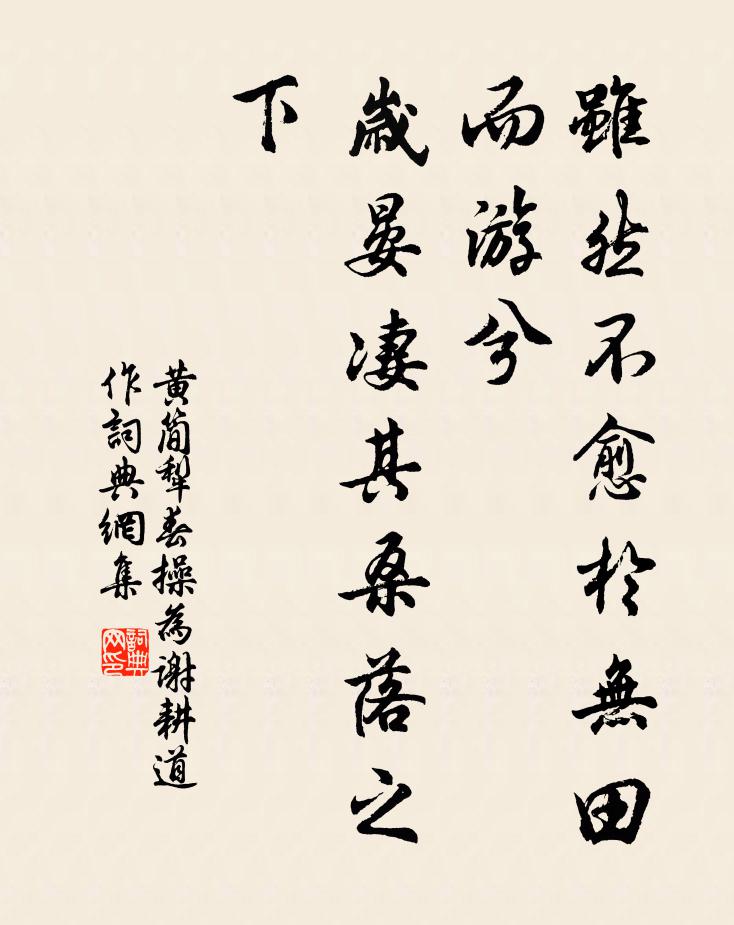 雖然不愈於無田
而游兮
歲晏凄其桑落之
下
黄簡犁春操為謝耕道
作詞典網集
詞典网印